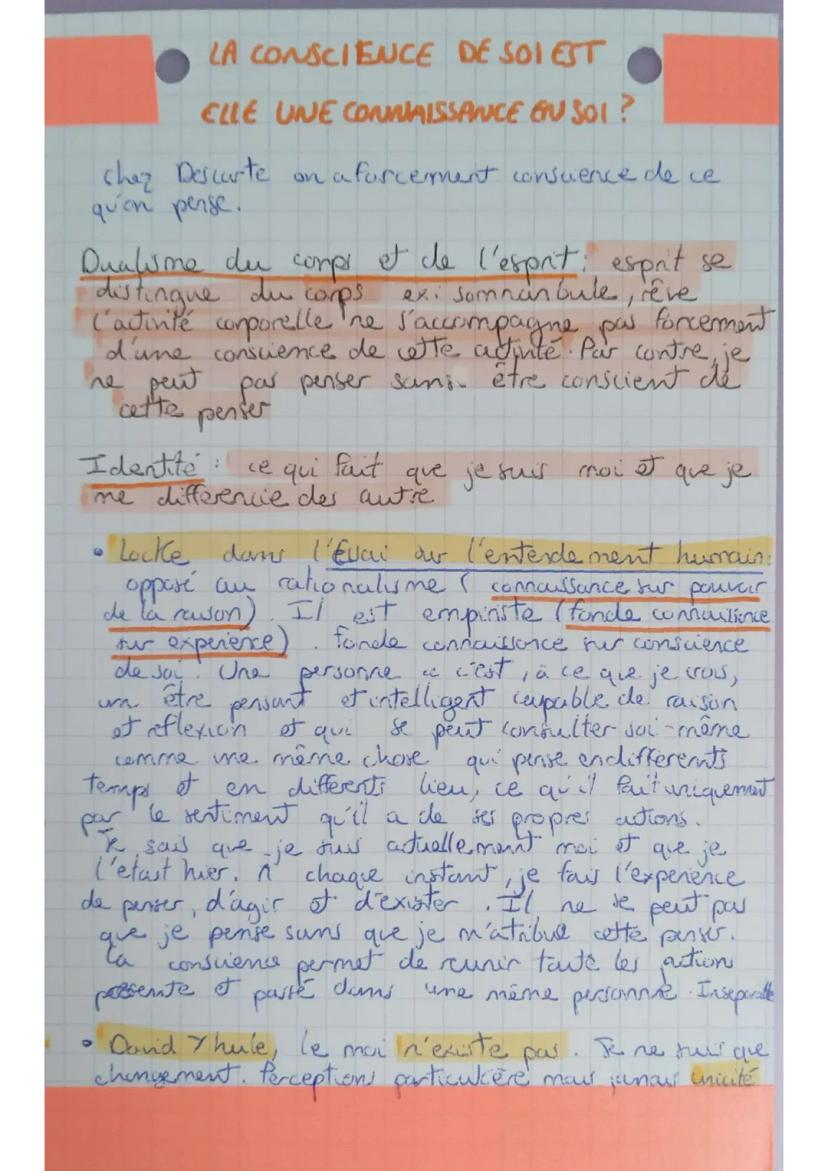 LA CONSCIENCE DE SOI EST
ELLE UNE CONNAISSANCE EN SOI ?
chez Descarte on a forcement consience de ce
qu'on pense.
Dualisme du corps et de l'esprit : esprit se
distingue du corps ex : somnanbule, rêve
l'activité corporelle ne s'accompagne pas forcement
d'une conscience de cette activité. Par contre, je
ne peut pas penser sans être conscient de
cette penser
Identité : ce qui fait que je suis moi et que je
me différencie des autre
• Locke dans l'Essai sur l'entendement humain :
opposé au rationalisme ( connaissance sur pouvoir
de la raison). Il est empiriste (fonde connaissance
sur experience). fonde connaissance sur conscience
de soi. Une personne "c'est, à ce que je crois,
un être pensant et intelligent capable de raison
et reflexion et qui se peut consulter soi-même
comme une même chose qui pense en differents
temps et en différents lieu, ce qu'il fait uniquement
par le sentiment qu'il a de ses propres actions.
Je sais que je suis actuellement moi et que je
l'etast hier. A chaque instant, je fais l'experience
de penser, d'agir et d'exister. Il ne se peut pas
que je pense sans que je m'atribue cette penser.
La conscience permet de reunir toute les action
presente et passé dans une même personne. Inseparable
• David Yhule, le moi n'existe pas. Je ne suis que
changement. Perceptions particulière mais jamais unicité